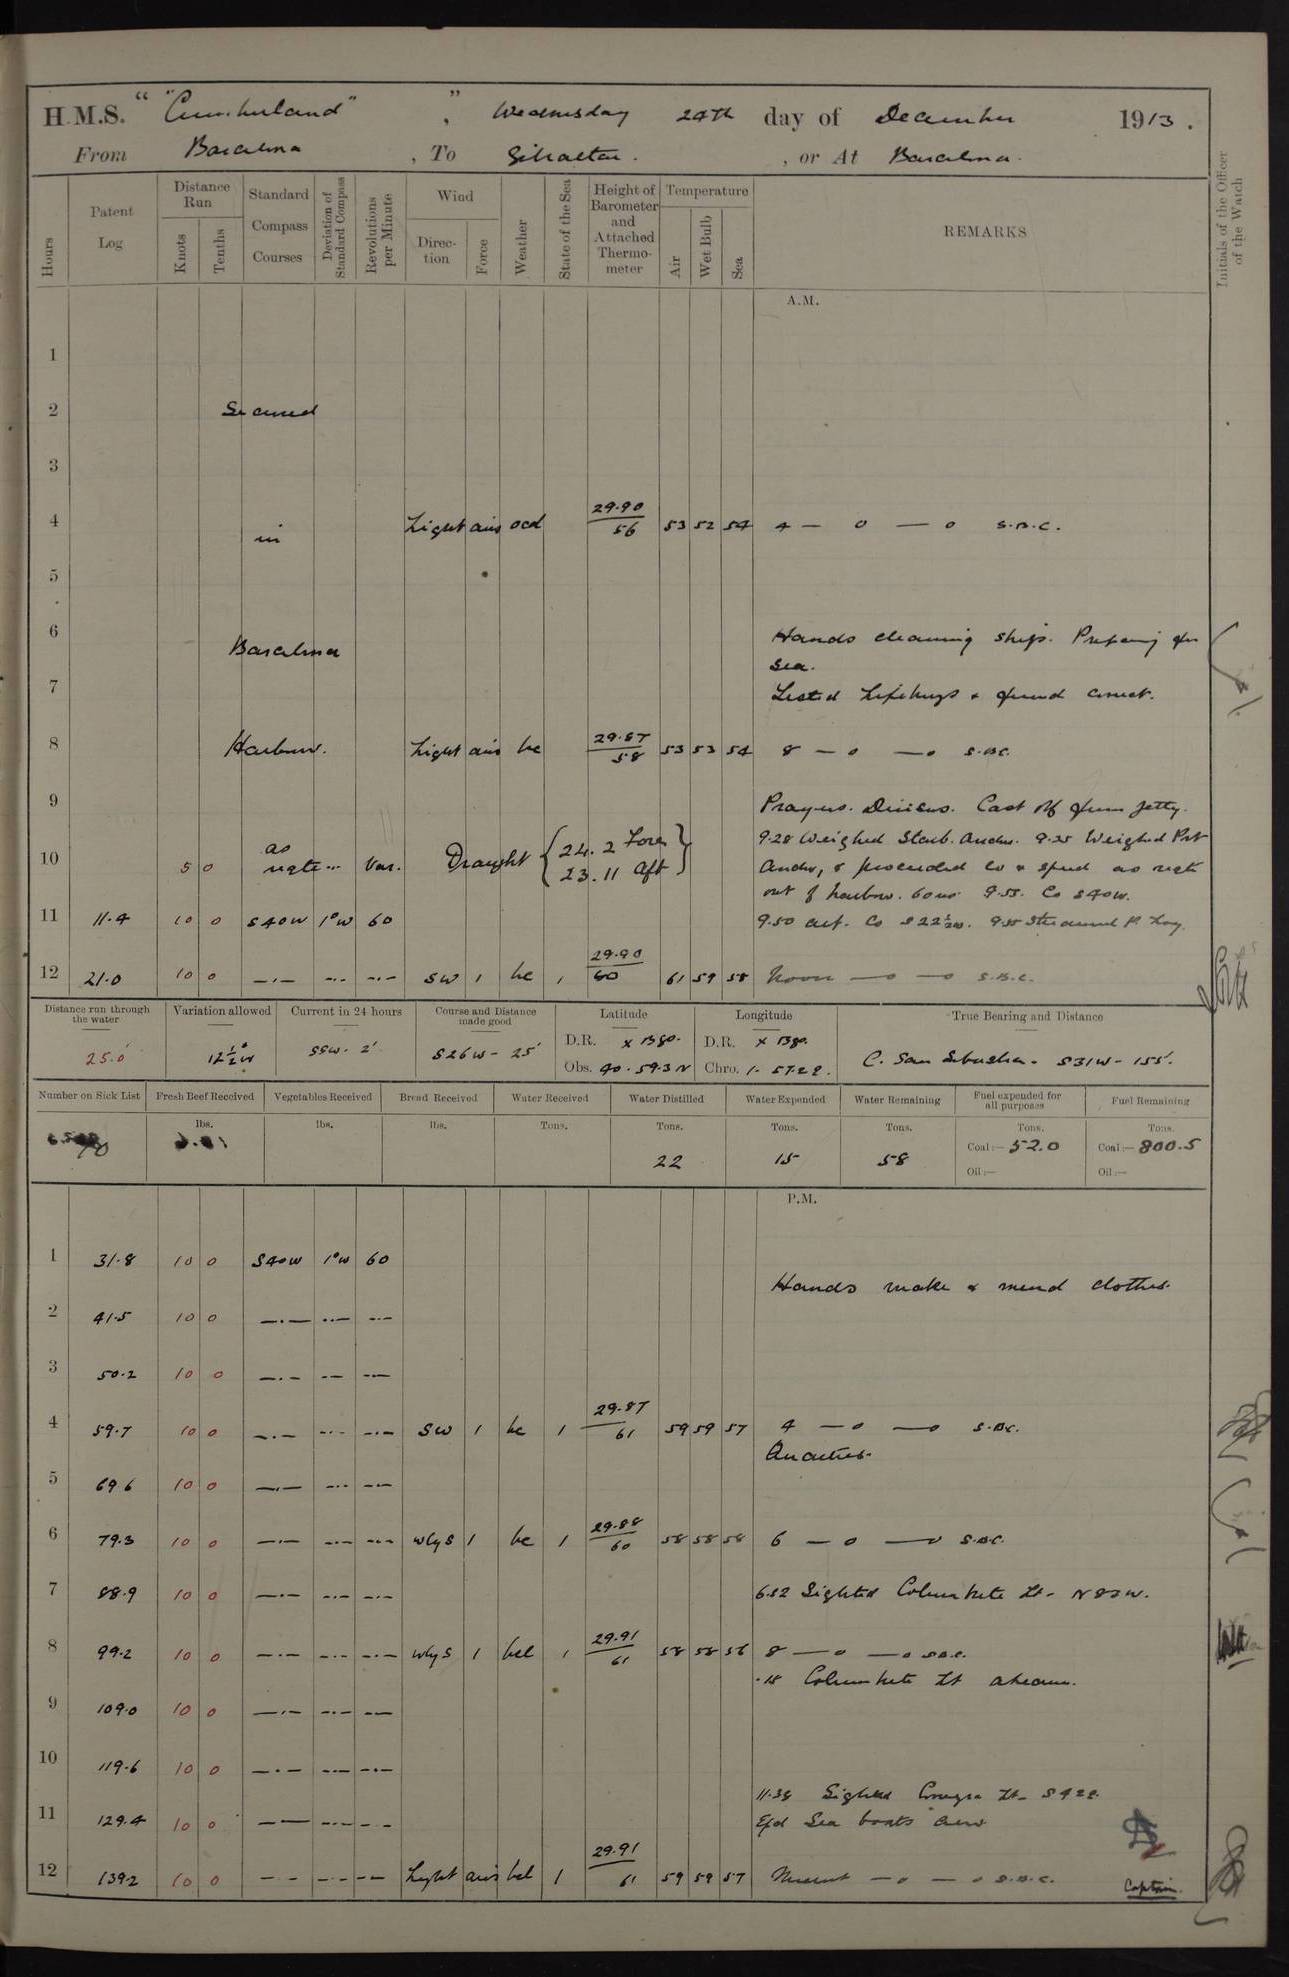 H.M.S. "Cumberland", Wednesday 24th day of December 1913.
From Barcelona, To Gibraltar., or At Barcelona.
Hours
Patent Log
Distance Run
Knots
Tenths
Standard Compass Courses
Deviation of Standard Compass
Revolutions per Minute
Wind
Direction
Force
Weather
State of the Sea
Height of Barometer and Attached Thermometer
Temperature
Air
Wet Bulb
Sea
REMARKS
Initials of the Officer of the Watch
A.M.
1
2 Secured
3
4 in Light airs ocd 29.90 56 53 52 54 4 — o — o S.B.C.
5
6 Barcelona Hands cleaning ship. Preparing for
sea.
7 Tested Lifebuoys & found correct.
8 Harbour. Light airs bc 29.87 58 53 53 54 8 — o — o S.B.C.
9 Prayers. Divisions. Cast off from jetty.
9.28 Weighed Starb. Anchor. 9.35 Weighed Port
10 5 0 as reqte Var. Draught { 24.2 Fore 23.11 Aft } Anchor, & proceeded Co & speed as reqte
out of harbour. 60 9.55. Co S40W.
11 11.4 10 0 S40W 1°W 60 9.50 a/c. Co S22½W. 9.55 Streamed P. Log.
12 21.0 10 0 —.— —.— —.— SW 1 bc 1 29.90 60 61 59 58 Noon — o — o S.B.C.
Distance run through the water
25.0'
Variation allowed
12½°W
Current in 24 hours
SSW - 2'
Course and Distance made good
S26W - 25'
Latitude
D.R. x Bgs.
Obs. 40.59.3N
Longitude
D.R. x Bgs.
Chro. 1.57.2E.
True Bearing and Distance
C. San Sebastian - S31W - 155'.
Number on Sick List
Fresh Beef Received
lbs.
Vegetables Received
lbs.
Bread Received
lbs.
Water Received
Tons.
Water Distilled
Tons.
22
Water Expended
Tons.
15
Water Remaining
Tons.
58
Fuel expended for all purposes
Tons.
Coal:— 52.0
Oil:—
Fuel Remaining
Tons.
Coal:— 800.5
Oil:—
P.M.
1 31.8 10 0 S40W 1°W 60
Hands make & mend clothes.
2 41.5 10 0 —.— —.— —.—
3 50.2 10 0 —.— —.— —.—
4 59.7 10 0 —.— —.— —.— SW 1 bc 1 29.87 61 59 59 57 4 — o — o S.B.C.
Quarters.
5 69.6 10 0 —.— —.— —.—
6 79.3 10 0 —.— —.— —.— Wlys 1 bc 1 29.88 60 58 58 58 6 — o — o S.B.C.
7 88.9 10 0 —.— —.— —.— 6.52 Sighted Columbrete Lt - N83W.
8 99.2 10 0 —.— —.— —.— Wlys 1 bcl 1 29.91 61 58 58 56 8 — o — o S.B.C.
.15 Columbrete Lt abeam.
9 109.0 10 0 —.— —.— —.—
10 119.6 10 0 —.— —.— —.—
11.38 Sighted Conejera Lt - S42E.
11 129.4 10 0 —.— —.— —.— Exd Sea boats crew
12 139.2 10 0 —.— —.— —.— Light airs bcl 1 29.91 61 59 59 57 Midnt — o — o S.B.C.
Captain.